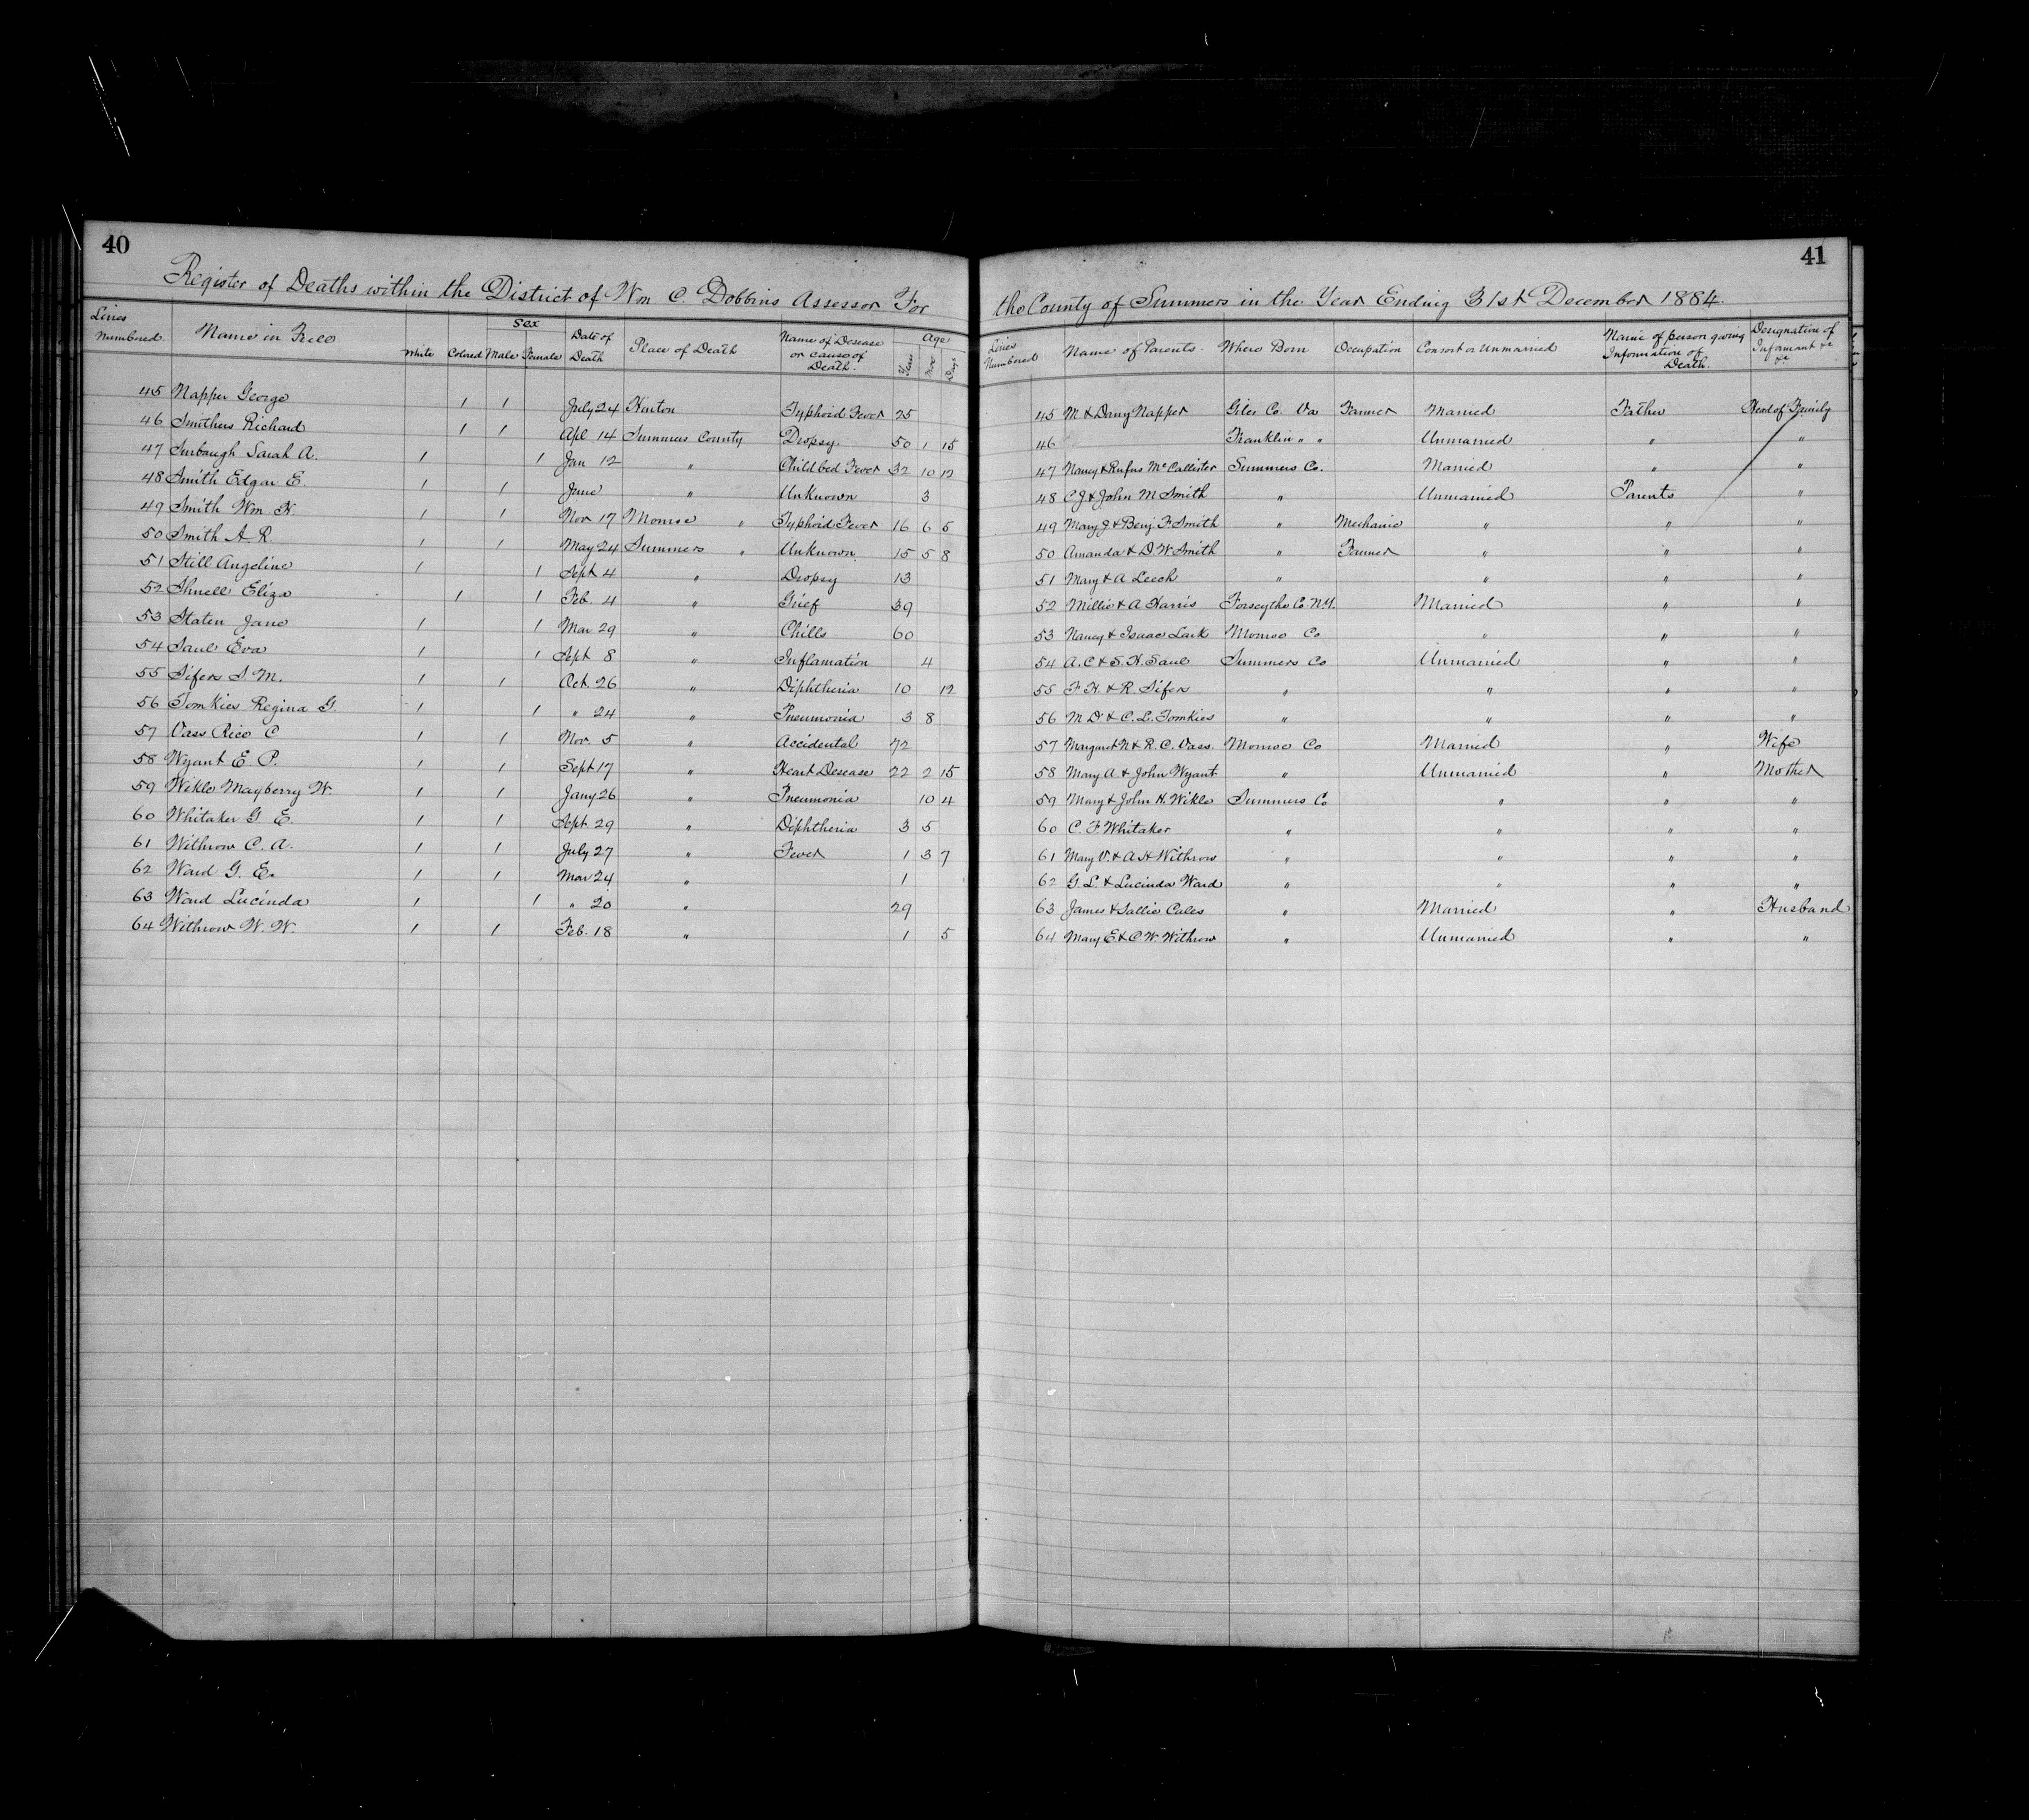 40
Register of Deaths within the District of Wm C. Dobbins Assessor For
Lines Numbered Name in Full White Colored Sex Male Female Date of Death Place of Death Name of Desease or cause of Death. Age Years Mos Days
45 Napper George 1 1 July 24 Hinton Typhoid Fever 25
46 Smithers Richard 1 1 Apl 14 Summers County Dropsy. 50 1 15
47 Surbaugh Sarah A. 1 1 Jan 12 " Child bed Fever 32 10 12
48 Smith Edgar E. 1 1 June " Unknown 3
49 Smith Wm H. 1 1 Nov 17 Monroe " Typhoid Fever 16 6 5
50 Smith A. R. 1 1 May 24 Summers " Unknown 15 5 8
51 Still Angeline 1 1 Sept 4 " Dropsy 13
52 Eliza 1 1 Feb. 4 " Grief 39
53 Staten Jane 1 1 Mar 29 " Chills 60
54 Saul Eva 1 1 Sept 8 " Inflamation 4
55 Sifers S M. 1 1 Oct. 26 " Diphtheria 10 12
56 Tomkies Regina G. 1 1 " 24 " Pneumonia 3 8
57 Vass Rice C 1 1 Nov. 5 " Accidental 72
58 Wyant E. P. 1 1 Sept 17 " Heart Desease 22 2 15
59 Wikle Mayberry W. 1 1 Jany 26 " Pneumonia 10 4
60 Whitaker G E. 1 1 Sept. 29 " Diphtheria 3 5
61 Withrow C. A. 1 1 July 27 " Fever 1 3 7
62 Ward G. E. 1 1 Mar 24 " 1
63 Ward Lucinda 1 1 " 20 " 29
64 Withrow W. W. 1 1 Feb. 18 " 1 5
41
the County of Summers in the Year Ending 31st December 1884.
Lines Numbered Name of Parents. Where Born Occupation Consort or Unmarried Name of person giving Information of Death. Designation of Informant &c
45 M. & Dany Napper Giles Co. Va Farmer Married Father Head of Family
46 Franklin " " Unmarried " "
47 Nancy & Rufus McCallister Summers Co. Married " "
48 C J & John M Smith " Unmarried Parents "
49 Mary J & Benj. F. Smith " Mechanic " " "
50 Amanda & D. W. Smith " Farmer " " "
51 Mary & A Leech " " " "
52 Millie & A Harris Forscythe Co. Married " "
53 Nancy & Isaac Lark Monroe Co " " "
54 A. C & S. H. Saul Summers Co Unmarried " "
55 F. H. & R. Sifers " " " "
56 M D & C. L. Tomkies " " " "
57 Margaret N & R. C. Vass. Monroe Co Married " Wife
58 Mary A. & John Wyant " Unmarried " Mother
59 Mary & John H. Wikle Summers Co " " "
60 C. F. Whitaker " " " "
61 Mary V. & A H Withrow " " " "
62 G. L. & Lucinda Ward " " " "
63 James & Sallie Cales " Married " Husband
64 Mary E & C W. Withrow " Unmarried " "